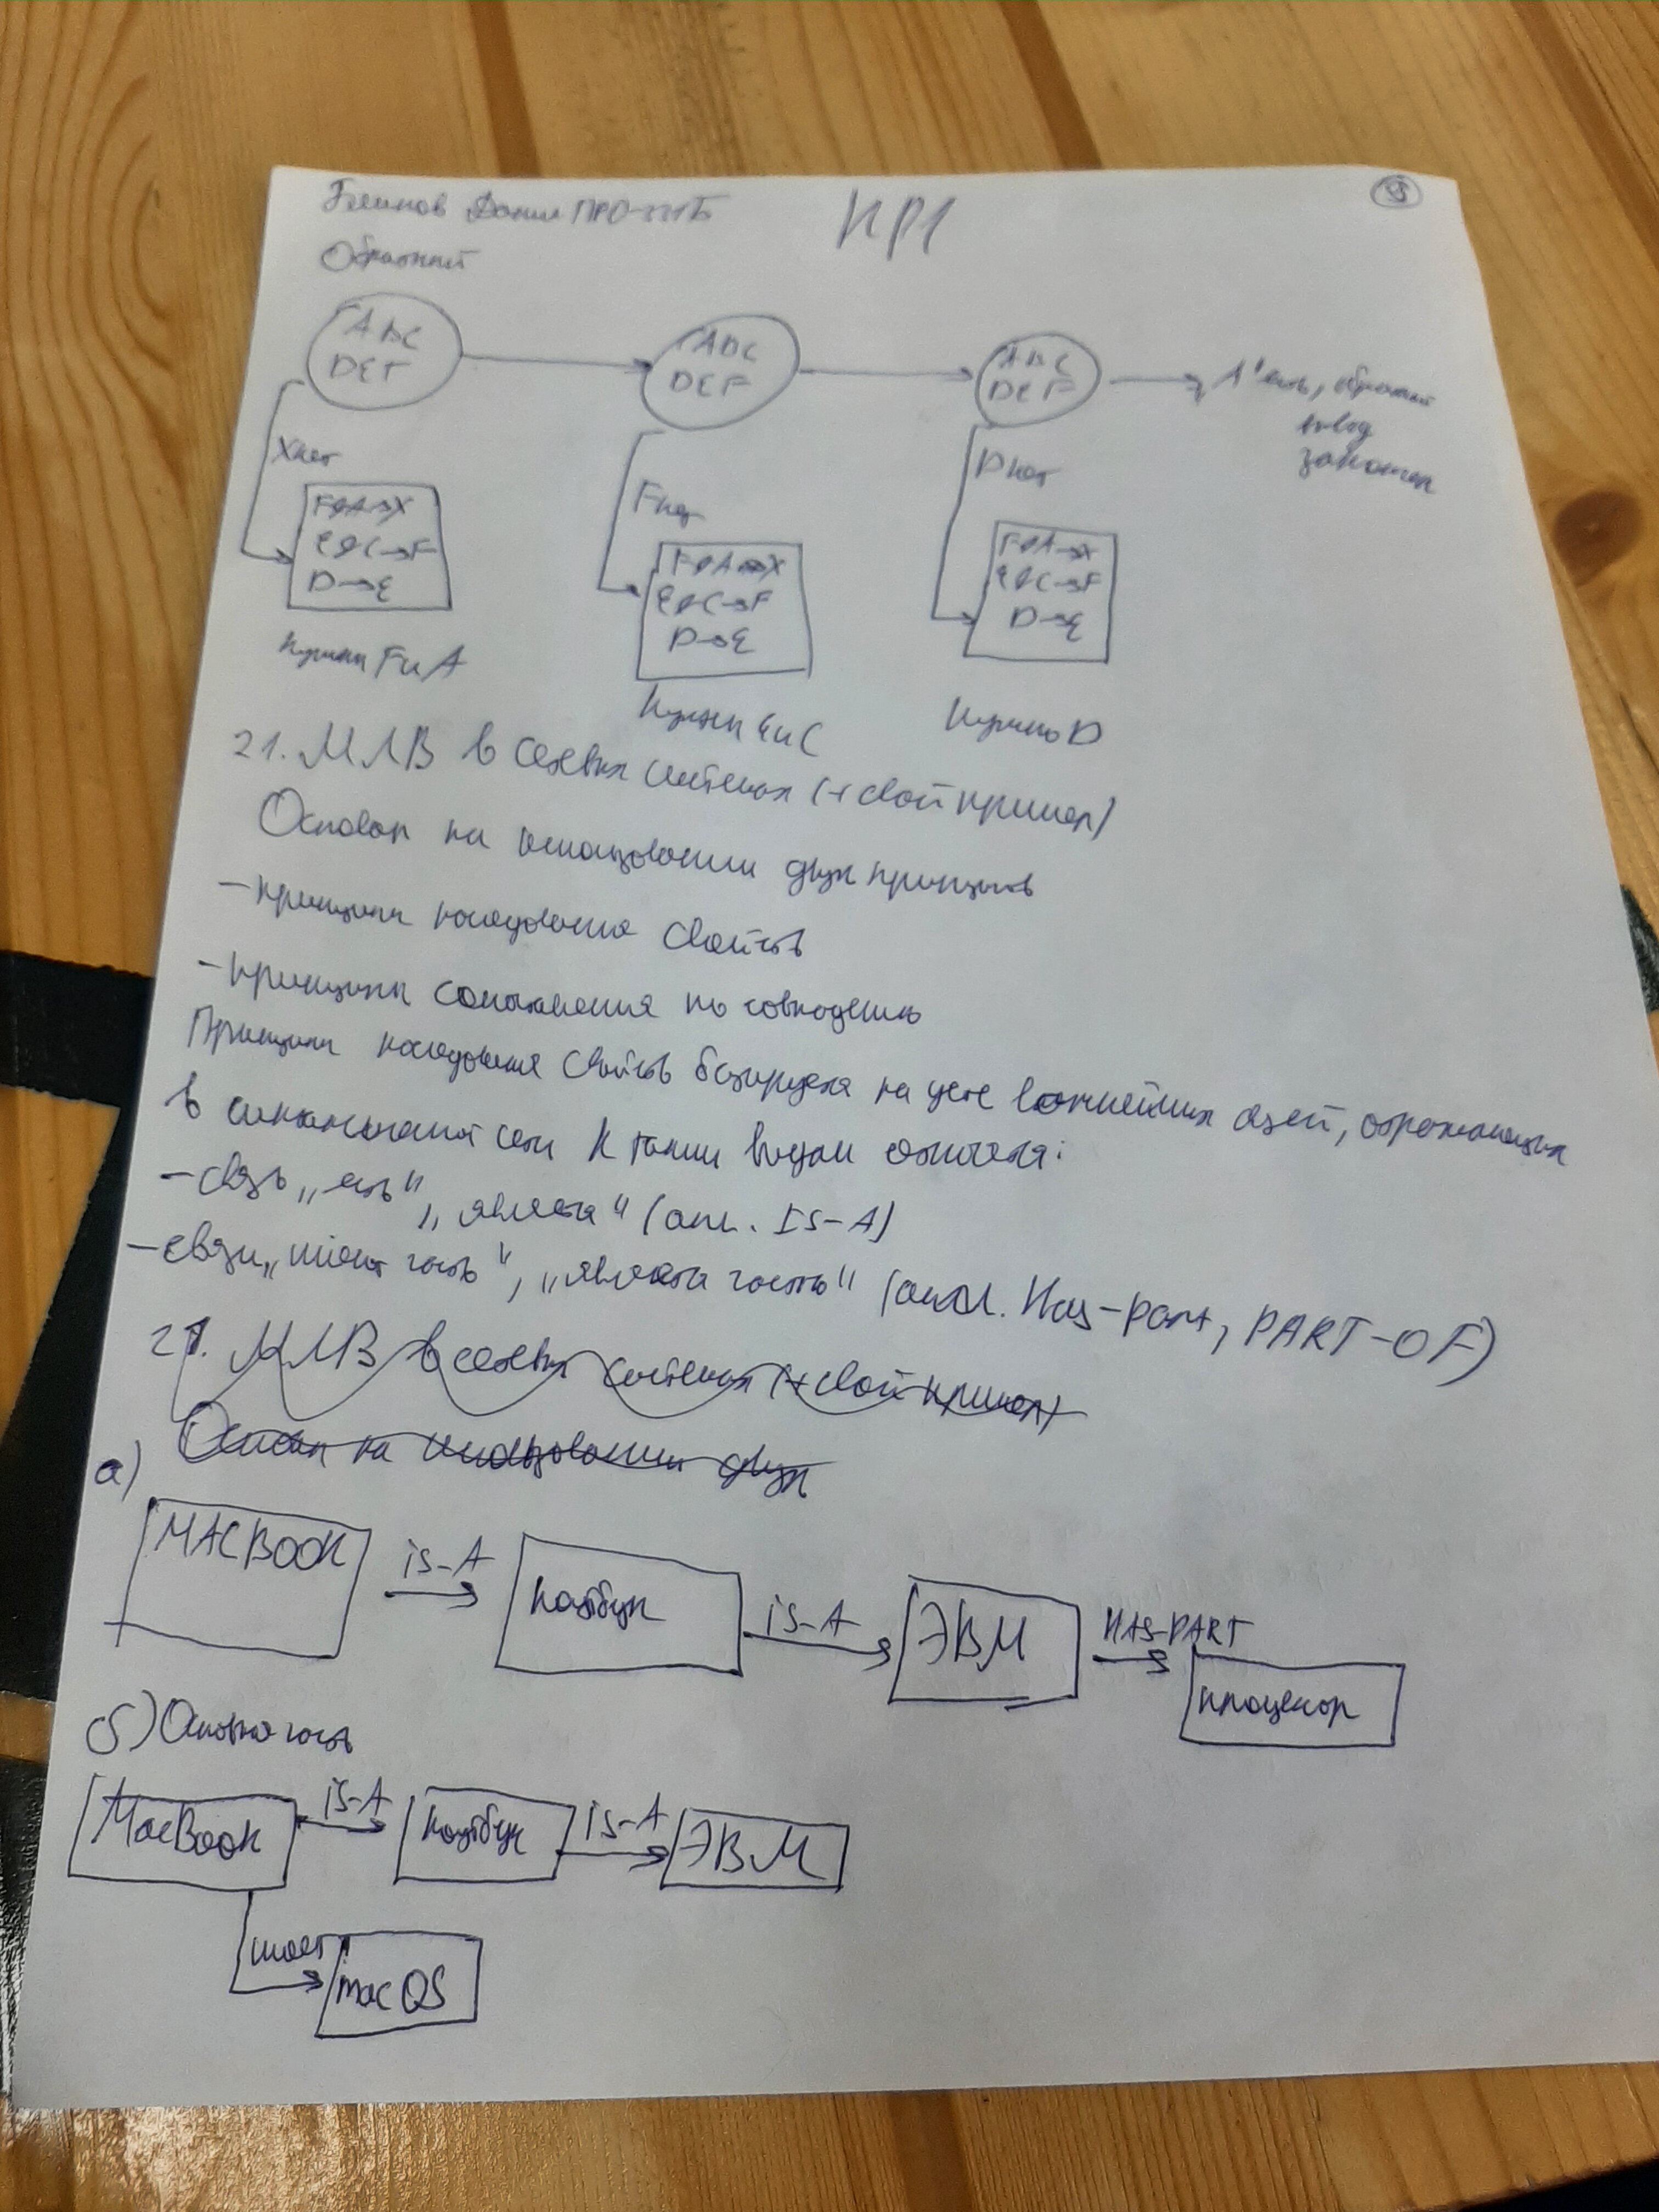 КР1
5
Обратный
ABC
DEF
ABC
DEF
ABC
DEF
A есть, обратный
вывод
закончен
X нет
F нет
D нет
F&A→X
E&C→F
D→E
F&A→X
E&C→F
D→E
F&A→X
E&C→F
D→E
Нужны F и A
Нужны E и C
Нужно D
21. МЛВ в сетевых системах (+ свой пример)
Основан на использовании двух принципов
- принцип наследования свойств
- принцип сопоставления по совпадению
Принцип наследования свойств базируется на цепи важнейших связей, отражающихся
в семантической сети К таким видам относятся:
- связь „есть“, „является“ (англ. IS-A)
- связи „имеет часть“, „является частью“ (англ. Has-part, PART-OF)
21. МЛВ в сетевых системах (+ свой пример)
Основан на использовании двух
а)
MACBOOK
is-A
ноутбук
is-A
ЭВМ
HAS-PART
процессор
б) Основная часть
MacBook
is-A
ноутбук
is-A
ЭВМ
имеет
macOS